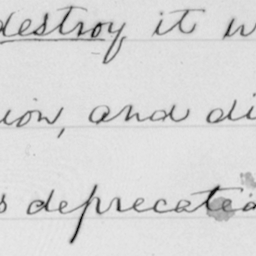 destroy it w
ion, and di
s deprecated